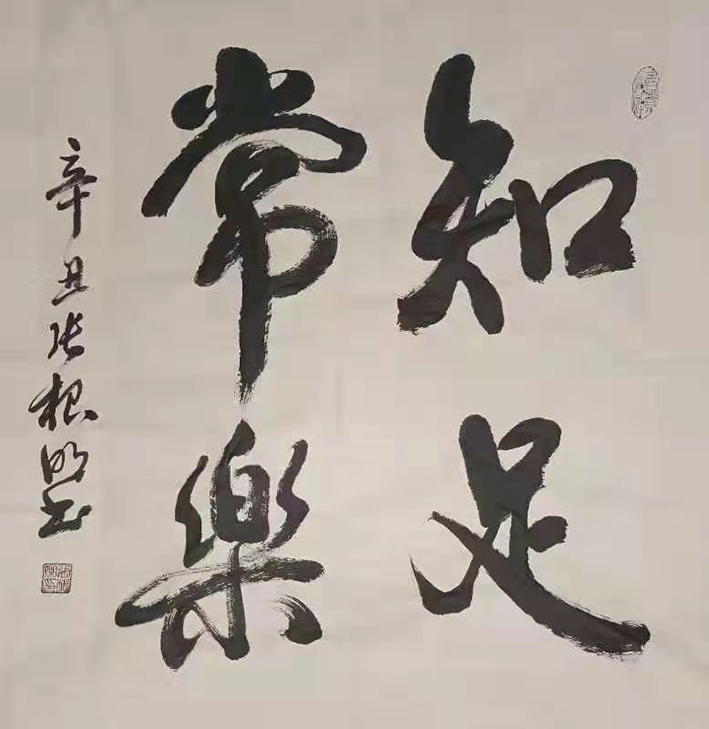 知足
常樂
辛丑张根明书